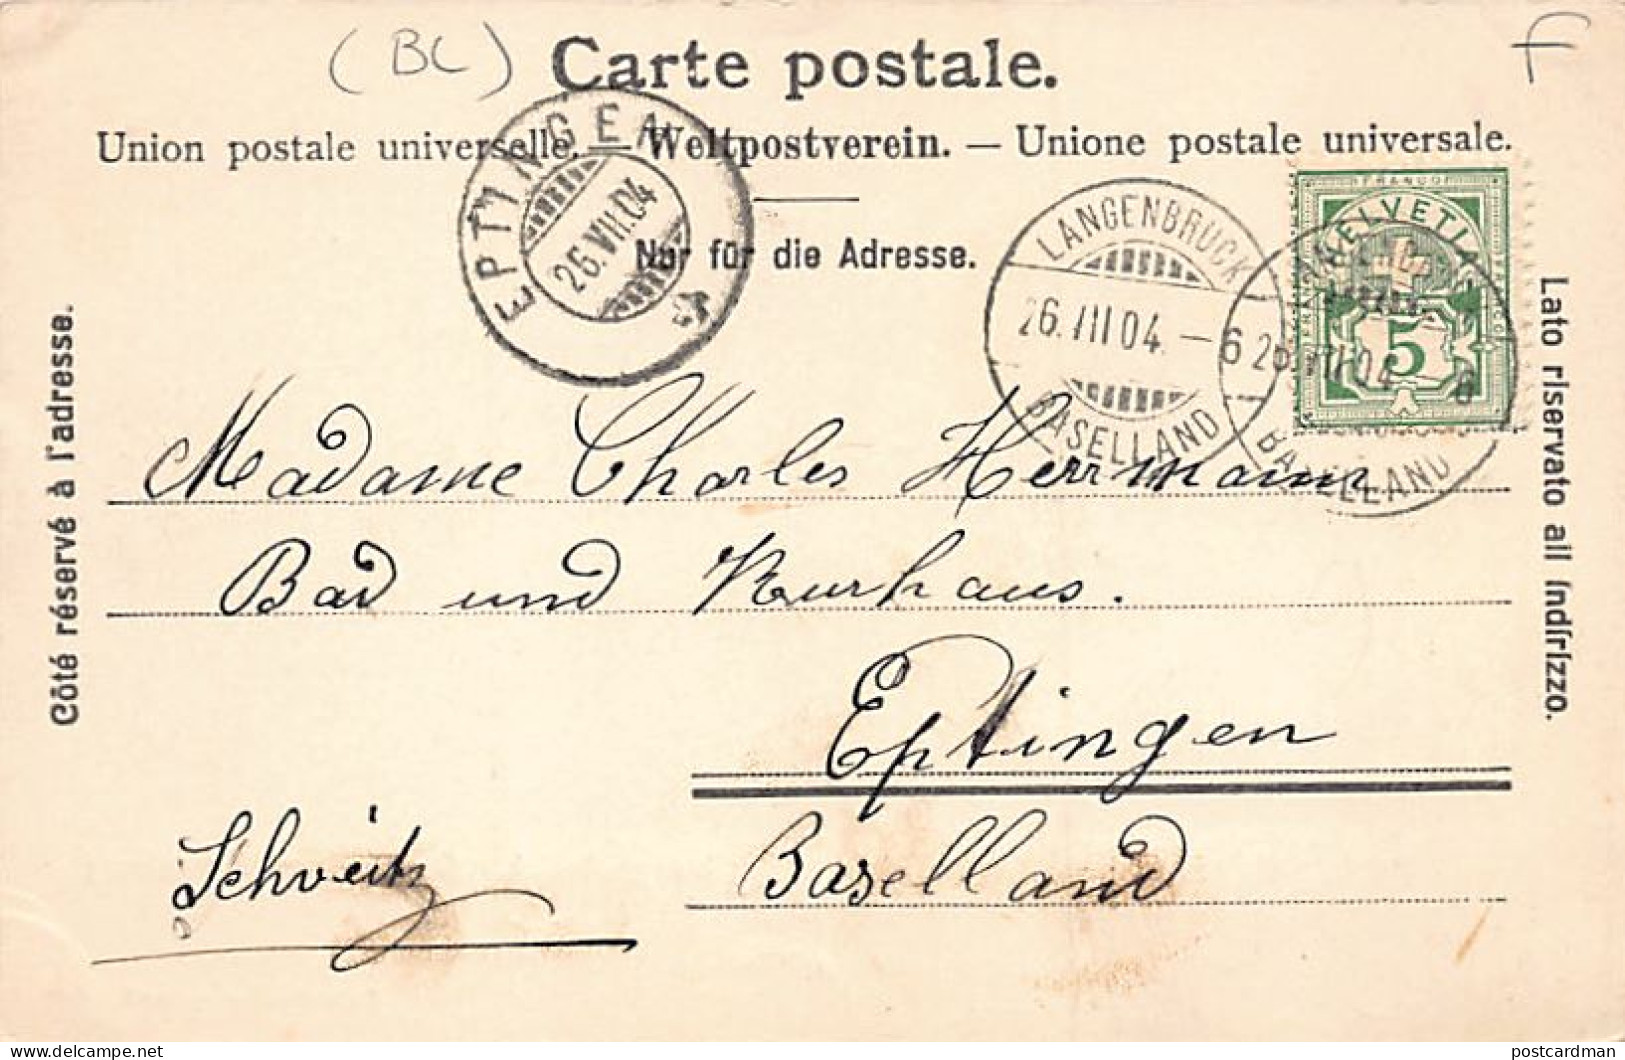 (BL) F
Carte postale.
Union postale universelle. — Weltpostverein. — Unione postale universale.
Nur für die Adresse.
EPTINGEN
26.VII.04
LANGENBRUCK
26.VII.04.-6
BASELLAND
FRANCO
HELVETIA
5
VII.04 6
BASELLAND
Côté réservé à l'adresse.
Lato riservato all indirizzo.
Madame Charles Herrmann
Bad und Kurhaus.
Eptingen
Baselland
Schveitz
delcampe.net
postcardman